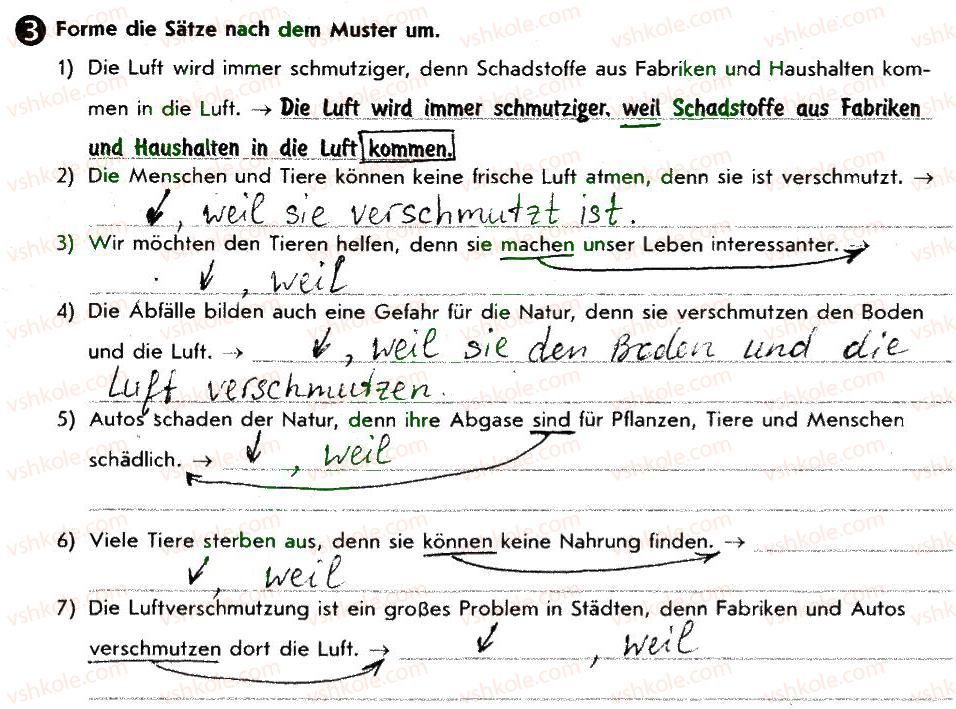 3 Forme die Sätze nach dem Muster um.
1) Die Luft wird immer schmutziger, denn Schadstoffe aus Fabriken und Haushalten kom-
men in die Luft. → Die Luft wird immer schmutziger, weil Schadstoffe aus Fabriken
und Haushalten in die Luft kommen.
2) Die Menschen und Tiere können keine frische Luft atmen, denn sie ist verschmutzt. →
, weil sie verschmutzt ist.
3) Wir möchten den Tieren helfen, denn sie machen unser Leben interessanter. →
, weil
4) Die Abfälle bilden auch eine Gefahr für die Natur, denn sie verschmutzen den Boden
und die Luft. → , weil sie den Boden und die
Luft verschmutzen.
5) Autos schaden der Natur, denn ihre Abgase sind für Pflanzen, Tiere und Menschen
schädlich. → , weil
6) Viele Tiere sterben aus, denn sie können keine Nahrung finden. →
, weil
7) Die Luftverschmutzung ist ein großes Problem in Städten, denn Fabriken und Autos
verschmutzen dort die Luft. → , weil